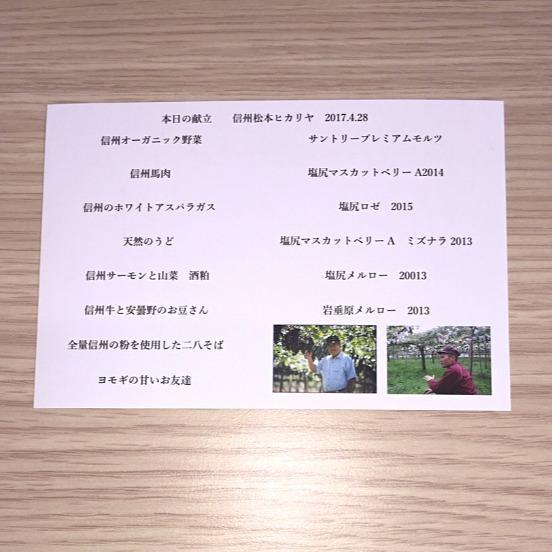 本日の献立　信州松本ヒカリヤ　2017.4.28
信州オーガニック野菜　サントリープレミアムモルツ
信州馬肉　塩尻マスカットベリーA2014
信州のホワイトアスパラガス　塩尻ロゼ　2015
天然のうど　塩尻マスカットベリーA　ミズナラ2013
信州サーモンと山菜　酒粕　塩尻メルロー　20013
信州牛と安曇野のお豆さん　岩垂原メルロー　2013
全量信州の粉を使用した二八そば
ヨモギの甘いお友達